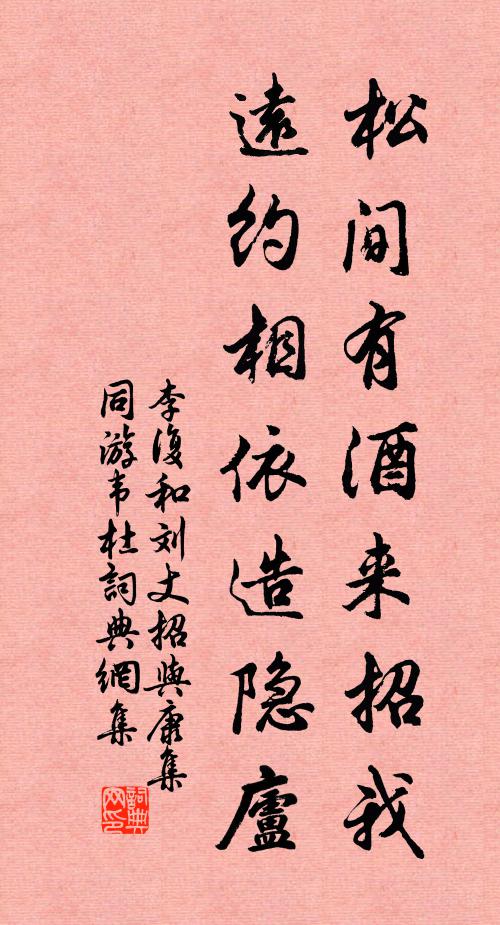 松间有酒来招我
遠约相依造隐廬
李復和刘丈招與康集
同游韦杜詞典網集
詞典网印